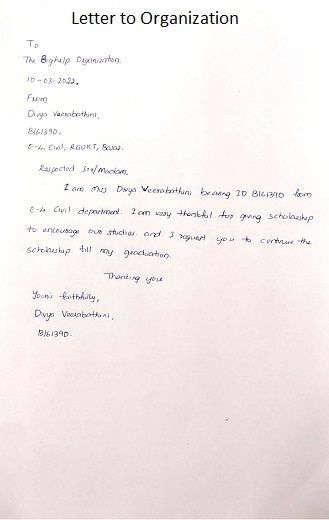 Letter to Organization
To
The Bighelp Organization.
10-03-2022,
From
Divya Veerabathini,
B161390,
E-4, Civil, RGUKT, Basar.
Respected Sir/Madam,
I am Miss Divya Veerabathini bearing ID B161390 from
E-4 Civil department. I am very thankful for giving scholarship
to encourage our studies. and I request you to continue the
scholarship till my graduation.
Thanking you
Yours faithfully,
Divya Veerabathini,
B161390.